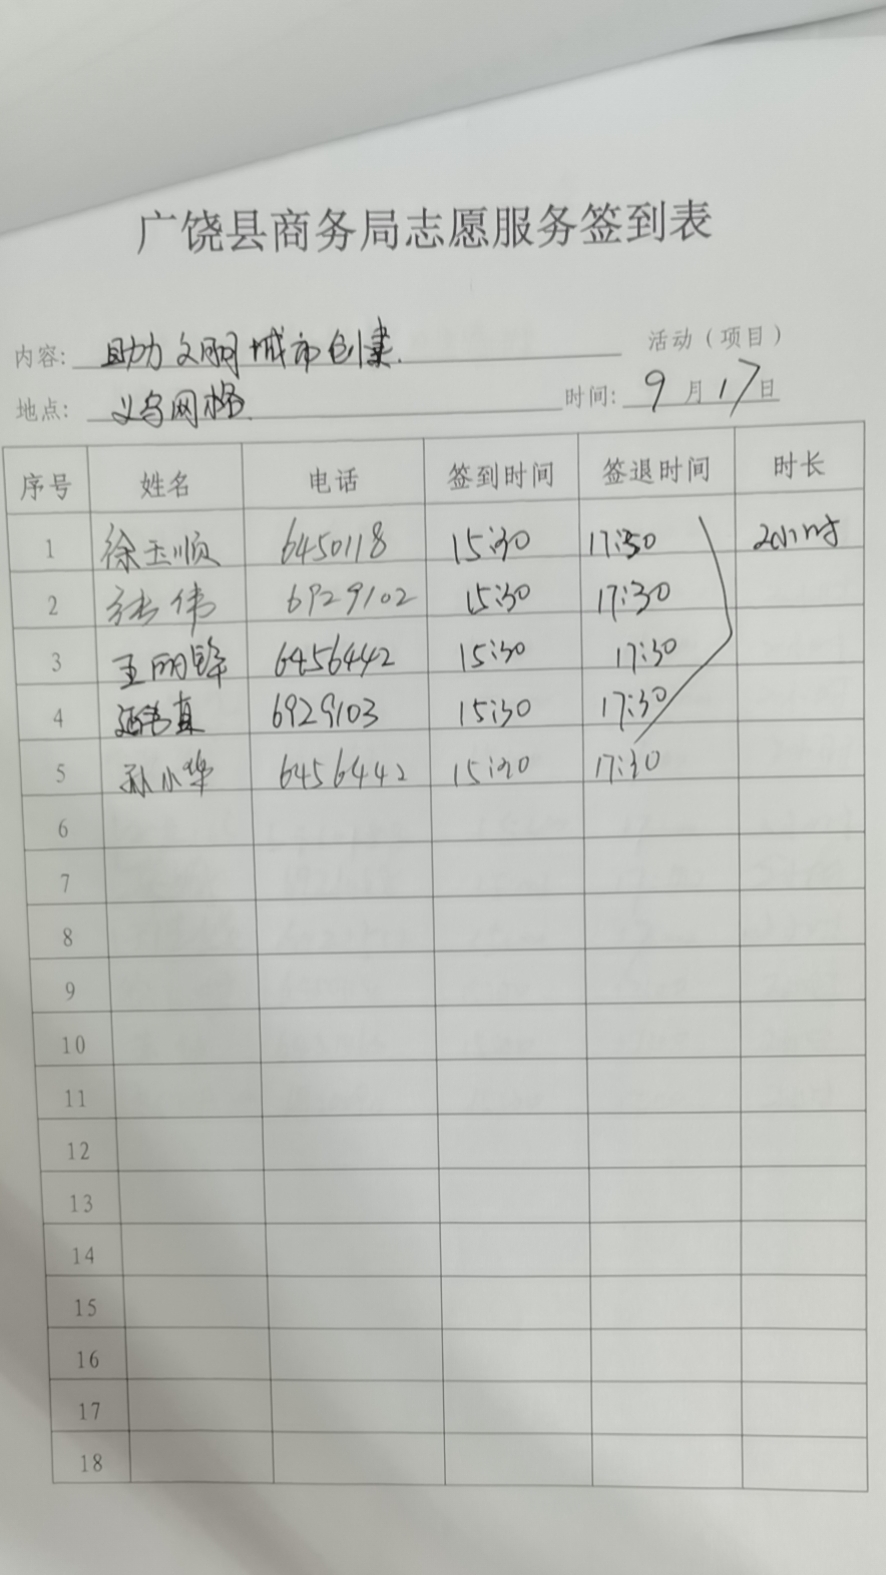 广饶县商务局志愿服务签到表
内容: 助力文明城市创建. 活动（项目）
地点: 义乌网格. 时间: 9月17日
序号 姓名 电话 签到时间 签退时间 时长
1 徐玉顺 6450118 15:30 17:30 2小时
2 张伟 6929102 15:30 17:30
3 王丽锋 6456442 15:30 17:30
4 6929103 15:30 17:30
5 孙小华 6456442 15:30 17:30
6
7
8
9
10
11
12
13
14
15
16
17
18